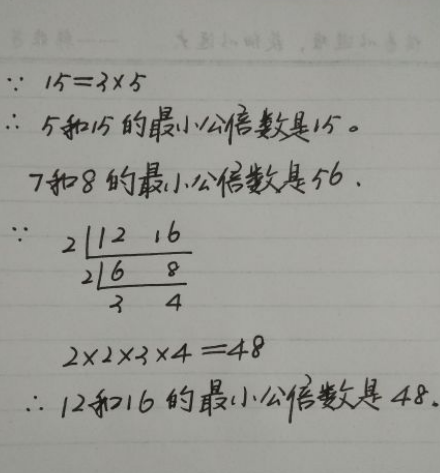 ∵ 15=3×5
∴ 5和15的最小公倍数是15。
7和8的最小公倍数是56.
∵ 2 12 16
2 6 8
3 4
2×2×3×4=48
∴ 12和16的最小公倍数是48.